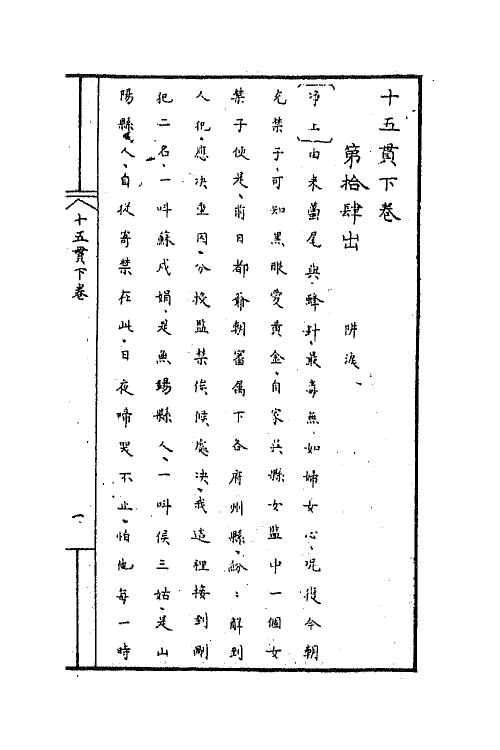 十五貫下卷
第拾肆出　阱淚
(淨上)由來蠆尾與蜂針、最毒無如婦女心、况復今朝
充禁子、可知黑眼愛黄金、自家吳縣女監中一個女
禁子便是、前日都爺朝審属下各府州縣、紛：解到
人犯、應决重囚、分發監禁俟候處决、我這裡接到剮
犯二名、一呌蘇戍娟、是魚塲縣人、一呌侯三姑、是山
陽縣人、自從寄禁在此、日夜啼哭不止、怕他每一時
十五貫下卷
一